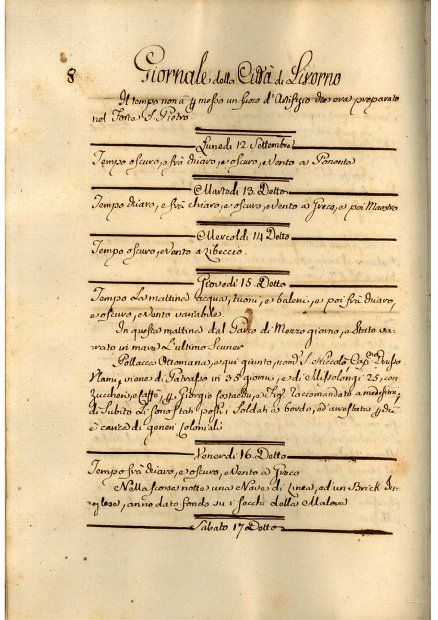 8 Giornale della Città di Livorno
Il tempo non à p messo un fuoco d'Artifizio che era preparato
nel Forte S. Pietro
Lunedi 12 Settembre
Tempo oscuro, e frà chiaro, e oscuro, e Vento a Ponente
Martedi 13 Detto
Tempo chiaro, e frà chiaro, e oscuro, e Vento a Greco, e poi Maestro
Mercoldi 14 Detto
Tempo oscuro, e Vento a Libeccio.
Giovedi 15. Detto
Tempo La mattina l'acqua, tuoni, e baleni, e poi frà chiaro,
e oscuro, e Vento variabile
In questa mattina dal Parco di Mezzo giorno, e Stato va-
rato in mare L'ultimo Scuner
Pollacca Ottomana, e qui giunta, nom S. Niccolò, Cap
viene di Patrasso in 35 giorni, e di Missolongi 25, con
Zuccheri, e Caffe, p Giorgio e Figl raccomandato a medesimi,
di Subito Li sono stati posti i Soldati a bordo, ed arrestata p che
è carica di generi Coloniali
Venerdi 16. Detto
Tempo frà chiaro, e oscuro, e Vento a Greco
Nella scorsa notte una Nave di Linea, ed un Brick In-
glese, anno dato fondo su i secchi della Malora
Sabato 17 Detto